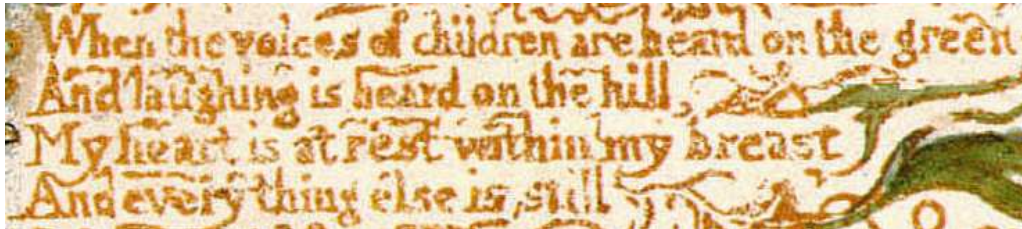 When the voices of children are heard on the green
And laughing is heard on the hill,
My heart is at rest within my breast
And every thing else is still